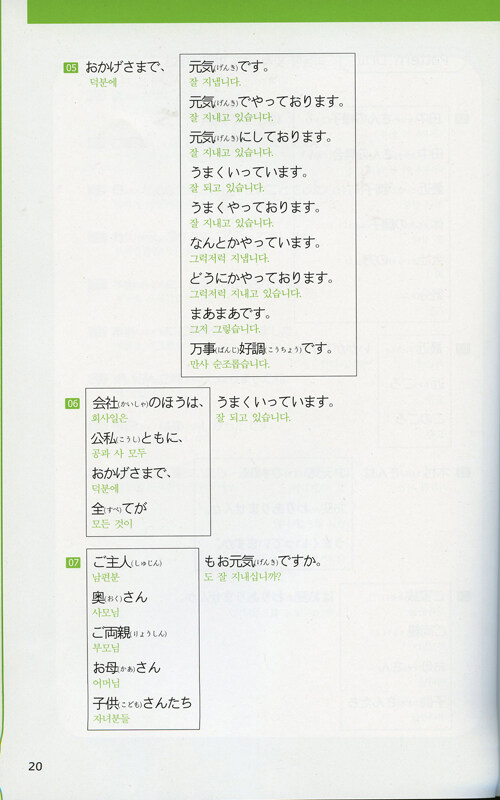 05 おかげさまで、 元気(げんき)です。
덕분에 잘 지냅니다.
元気(げんき)でやっております。
잘 지내고 있습니다.
元気(げんき)にしております。
잘 지내고 있습니다.
うまくいっています。
잘 되고 있습니다.
うまくやっております。
잘 지내고 있습니다.
なんとかやっています。
그럭저럭 지냅니다.
どうにかやっております。
그럭저럭 지내고 있습니다.
まあまあです。
그저 그렇습니다.
万事(ばんじ)好調(こうちょう)です。
만사 순조롭습니다.
06 会社(かいしゃ)のほうは、 うまくいっています。
회사일은 잘 되고 있습니다.
公私(こうし)ともに、
공과 사 모두
おかげさまで、
덕분에
全(すべ)てが
모든 것이
07 ご主人(しゅじん) もお元気(げんき)ですか。
남편분 도 잘 지내십니까?
奥(おく)さん
사모님
ご両親(りょうしん)
부모님
お母(かあ)さん
어머님
子供(こども)さんたち
자녀분들
20